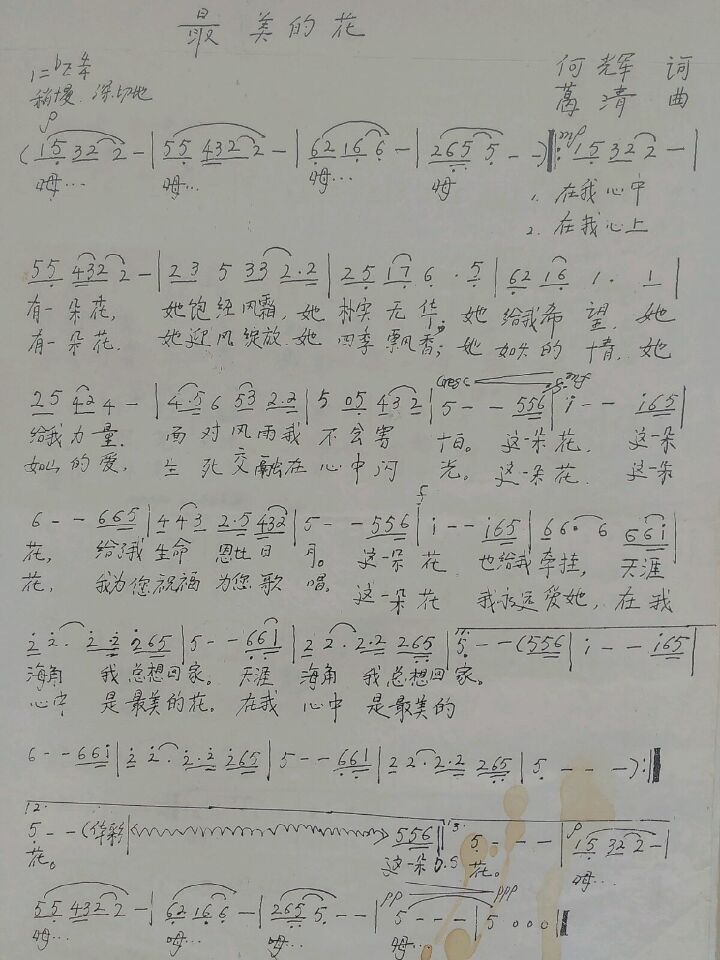 最美的花
1=bE 4/4
何辉 词
稍慢 深切地
葛清 曲
p
(15 322 - | 55 4322 - | 62 166 - | 265 5 - -) ‖: mf 15 322 - |
呣… 呣… 呣… 呣 1. 在我心中
2. 在我心上
55 4322 - | 23 5 33 2.2 | 25 17 6 . 5 | 62 16 1 . 1 |
有一朵花, 她饱经风霜,她 朴实无华;她 给我希望,她
有一朵花. 她迎风绽放.她 四季飘香;她 如水的情,她
25 42 4 - | 4.5 6 53 2.2 | 5 05 432 | 5 - - 556 | i - - i65 |
cresc mf
给我力量. 面对风雨我 不会害 怕。 这一朵花, 这一朵
如山的爱, 生死交融在 心中闪 光。 这一朵花. 这一朵
6 - - 665 | 443 2.5 432 | 5 - - 556 | i - - i65 | 66. 6 66i |
f
花, 给了我生命 恩比日 月。 这一朵 花 也给我牵挂, 天涯
花, 我为您祝福 为您歌 唱。 这一朵 花 我永远爱她,在我
22. 2.2 265 | 5 - - 66i | 22. 2.2 265 | 5 - - (556 | i - - i65 |
海角 我总想回家。 天涯 海角 我总想回家。
心中 是最美的花。在我 心中 是最美的
6 - - 66i | 22. 2.2 265 | 5 - - 661 | 22.2.2 265 | 5 - - -) :‖
12. 13.
5 - - (伴奏 556 ‖ 5 - - - | p 15 322 - |
花。 这一朵 D.S 花。 呣…
55 4322 - | 62 166 - | 265 5 - - | pp 5 - - - | ppp 5 0 0 0 ‖
呣… 呣… 呣… 呣…